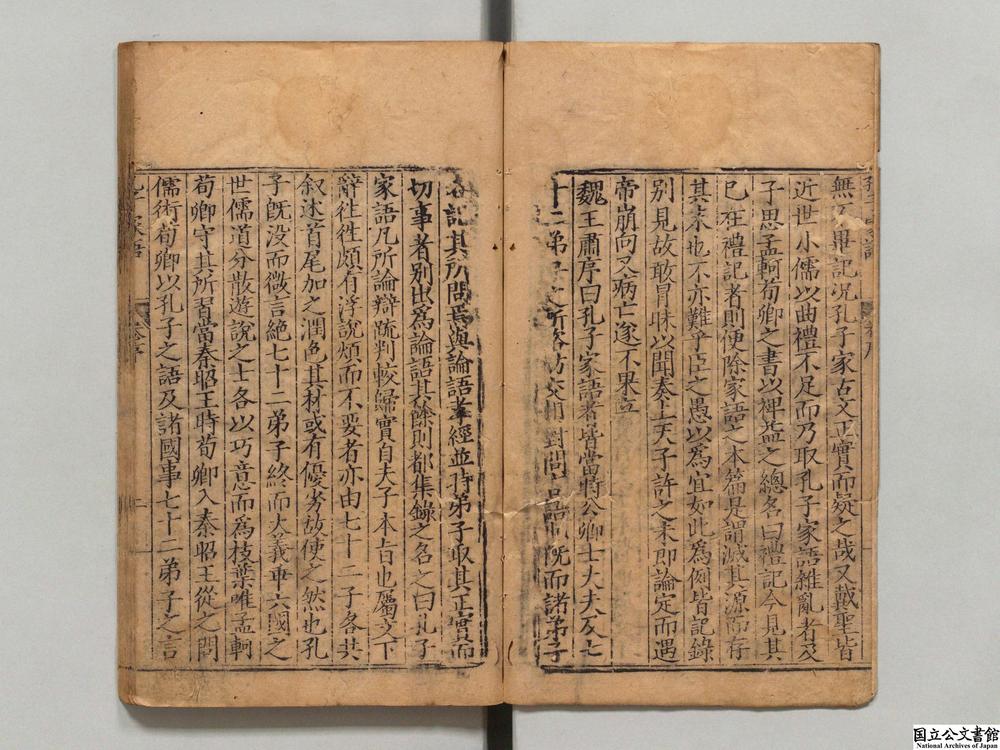 無不畢記况孔子家古文正實而疑之哉又戴聖皆
近世小儒以曲禮不足而乃取孔子家語雜亂者及
子思孟軻荀卿之書以裨益之總名曰禮記今見其
已在禮記者則便除家語之本篇是謂滅其源而存
其末也不亦難乎臣之愚以爲宜如此爲例皆記錄
別見故敢冒昧以聞奏上天子許之未即論定而遇
帝崩向又病亡遂不果立
魏王肅序曰孔子家語者皆當時公卿士大夫及七
十二弟子之所咨訪交相對問言語也旣而諸弟子
各記其所問焉與論語孝經並時弟子取其正實而
切事者別出爲論語其餘則都集錄之名之曰孔子
家語凡所論辯䟽判較歸實自夫子本旨也屬文下
辭徃徃頗有浮說煩而不要者亦由七十二子各共
叙述首尾加之潤色其材或有優劣故使之然也孔
子旣没而微言絶七十二弟子終而大義乖六國之
世儒道分散遊說之士各以巧意而爲枝葉唯孟軻
荀卿守其所習當秦昭王時荀卿入秦昭王從之問
儒術荀卿以孔子之語及諸國事七十二弟子之言
孔子家語
卷序
二
国立公文書館
National Archives of Japan